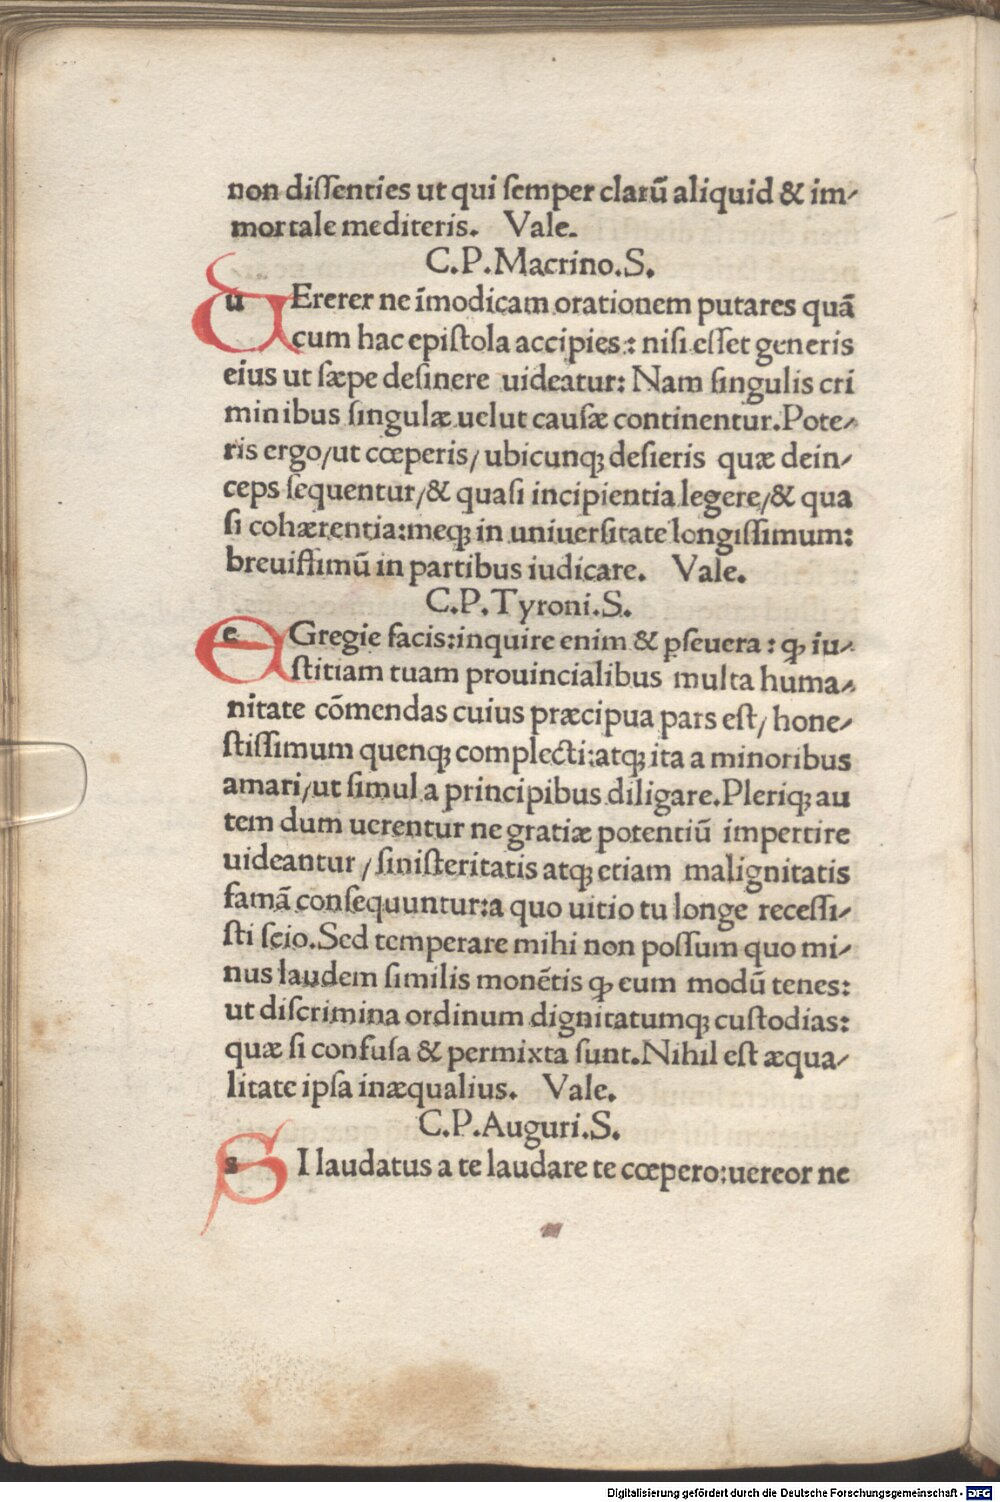 non diſſenties ut qui ſemper clarū aliquid & im⸗
mortale mediteris. Vale.
C.P.Macrino.S.
uErerer ne īmodicam orationem putares quā
cum hac epiſtola accipies: niſi eſſet generis
eius ut ſæpe deſinere uideatur: Nam ſingulis cri
minibus ſingulæ uelut cauſæ continentur.Pote⸗
ris ergo/ut cœperis/ ubicunqꝫ deſieris quæ dein⸗
ceps ſequentur/& quaſi incipientia legere/& qua
ſi cohærentia:meqꝫ in uniuerſitate longiſſimum:
breuiſſimū in partibus iudicare. Vale.
C.P.Tyroni.S.
eGregie facis:inquire enim & ꝑſeuera: ꝙ iu⸗
ſtitiam tuam prouincialibus multa huma⸗
nitate cōmendas cuius præcipua pars eſt/ hone⸗
ſtiſſimum quenqꝫ complecti:atqꝫ ita a minoribus
amari/ut ſimul a principibus diligare.Pleriqꝫ au
tem dum uerentur ne gratiæ potentiū impertire
uideantur/ ſiniſteritatis atqꝫ etiam malignitatis
famā conſequuntur:a quo uitio tu longe receſſi⸗
ſti ſcio.Sed temperare mihi non poſſum quo mi⸗
nus laudem ſimilis monētis ꝙ eum modū tenes:
ut diſcrimina ordinum dignitatumqꝫ cuſtodias:
quæ ſi confuſa & permixta ſunt.Nihil eſt æqua⸗
litate ipſa inæqualius. Vale.
C.P.Auguri.S.
sI laudatus a te laudare te cœpero:uereor ne
Digitalisierung gefördert durch die Deutsche Forschungsgemeinschaft - DFG